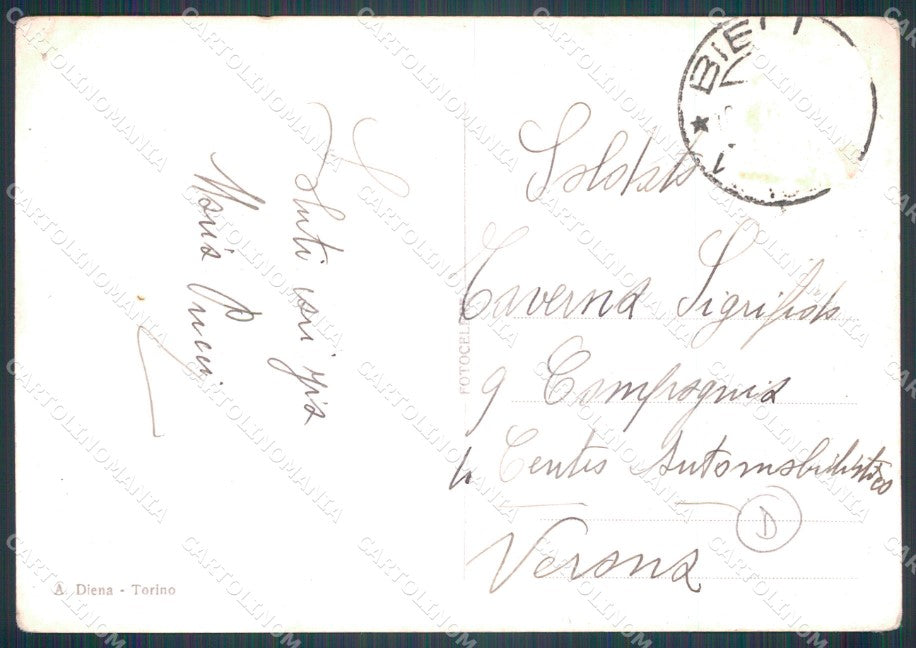 Saluti cari
Maria Pucci
BIEL
Soldato
Taverna Sigrifido
9 Compagnia
4 Centro Automobilistico
Verona
D
FOTOCELERE
A. Diena - Torino
CARTOLINOMANIA